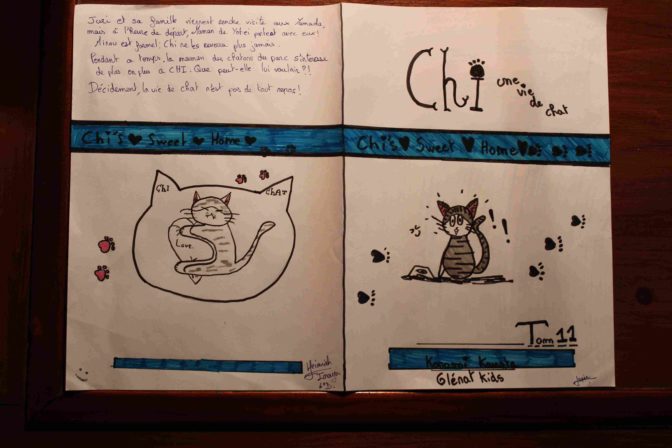 Juri et sa famille viennent rendre visite aux Yamada,
mais à l'heure du départ, Maman de Yohei partent avec eux!
Ainsi est formel: Chi ne les reverra plus jamais
Pendant ce temps, la maman des chatons du parc s'intéresse
de plus en plus à CHI. Que peut-elle lui vouloir?!
Décidément, la vie de chat n'est pas de tout repos!
Chi's Sweet Home
CHI CHAT
Love
Chi
une vie
de chat
Chi's Sweet Home
!!
Tom 11
Konami Kanata
Glénat kids